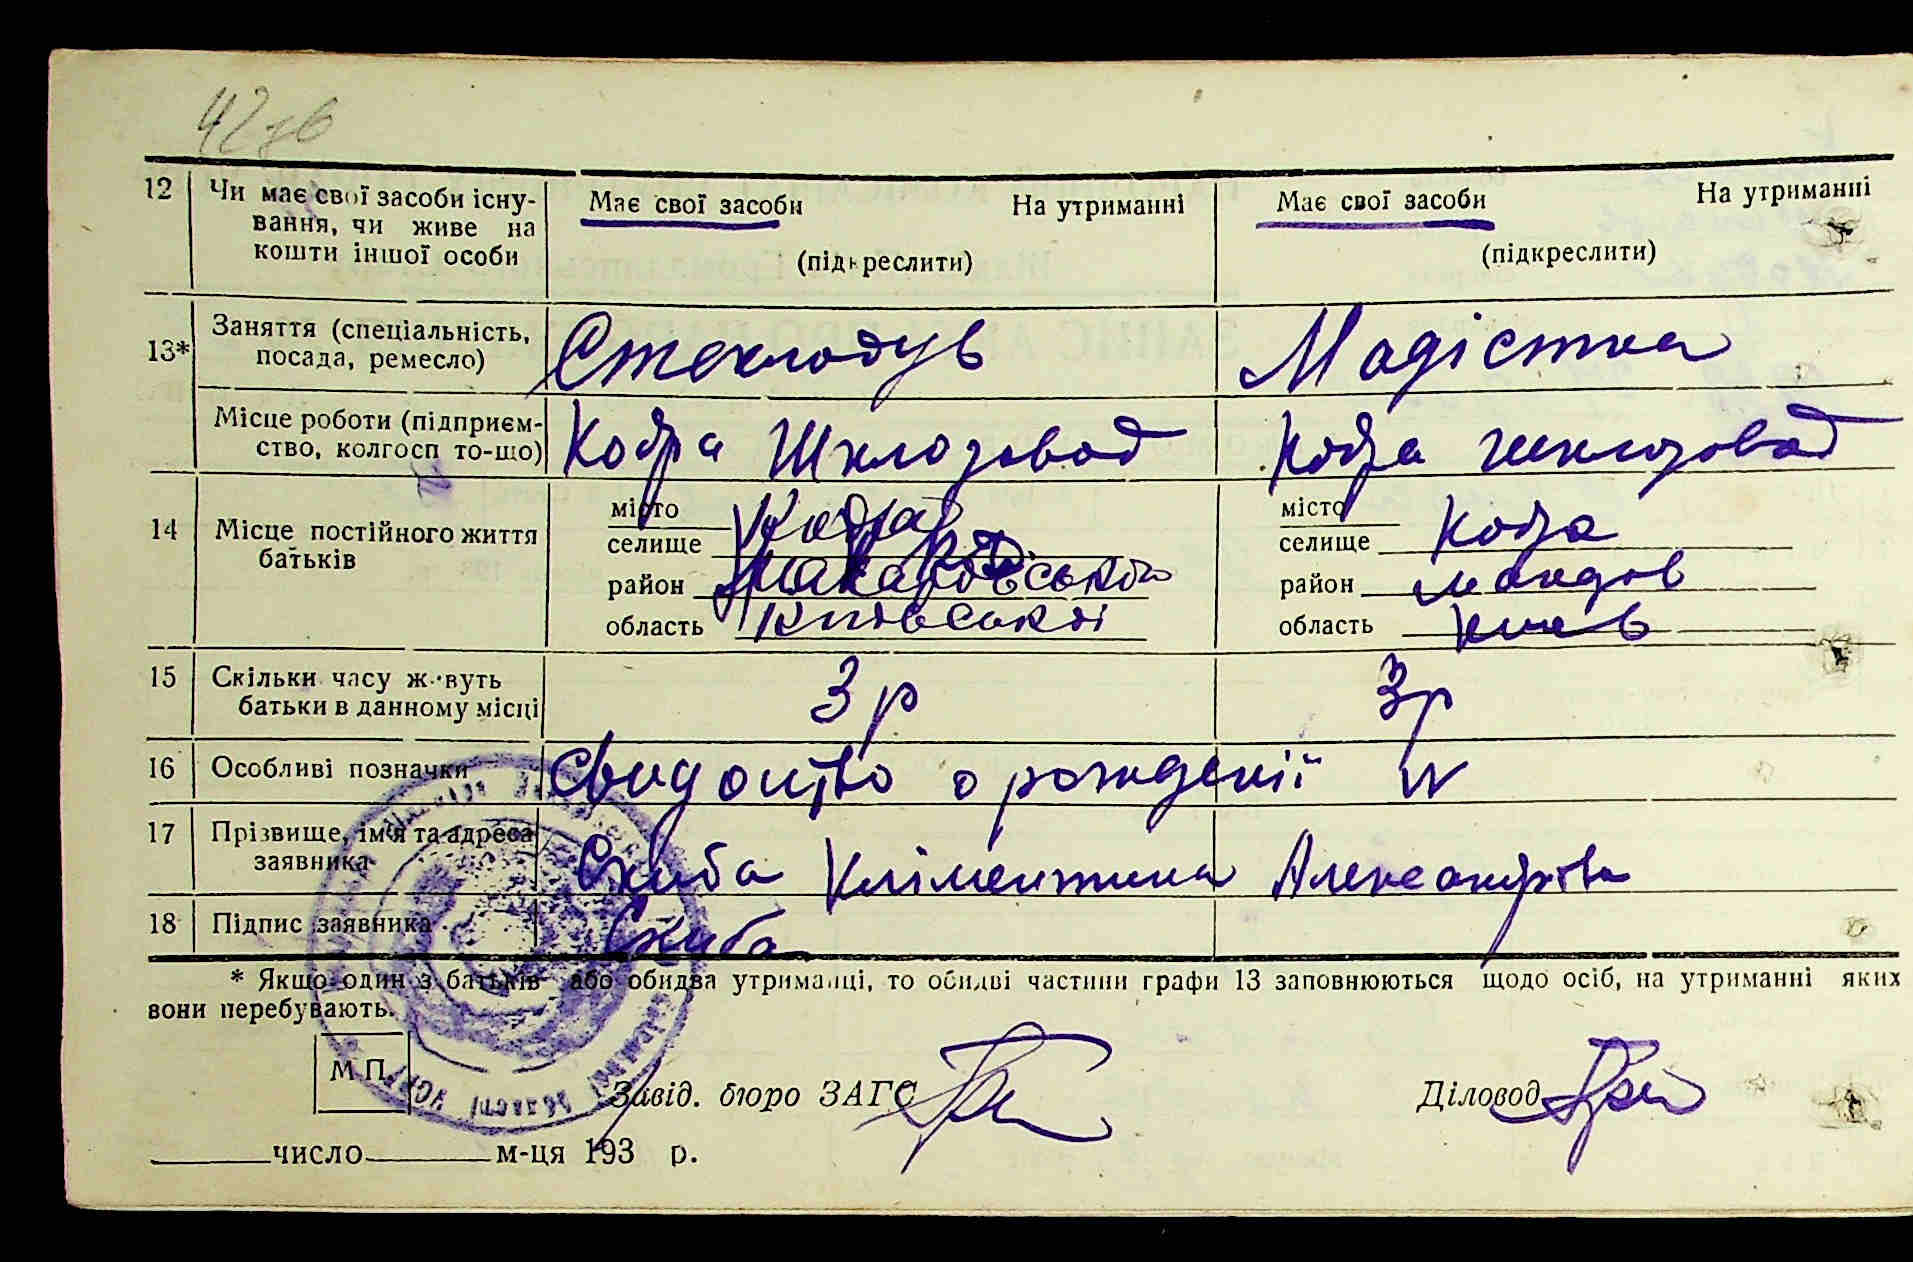 42зв
12 Чи має свої засоби існу- Має свої засоби На утриманні Має свої засоби На утриманні
вання, чи живе на
кошти іншої особи (підкреслити) (підкреслити)
13* Заняття (спеціальність, Стеклодув Модістка
посада, ремесло)
Місце роботи (підприєм- Кодра Шклозавод Кодра шклозавод
ство, колгосп то-що)
14 Місце постійного життя місто Кодра місто Кодра
батьків селище селище
район Макаровської район
область Київської область Киев
15 Скільки часу живуть 3 р 3 р
батьки в данному місці
16 Особливі позначки Свидоцтво о рожденії №
17 Прізвище, ім'я та адреса Скиба Кліментина Александровна
заявника
18 Підпис заявника Скиба
* Якщо один з батьків або обидва утриманці, то обидві частини графи 13 заповнюються щодо осіб, на утриманні яких
вони перебувають.
М.П.
Завід. бюро ЗАГС Діловод
число м-ця 193 р.